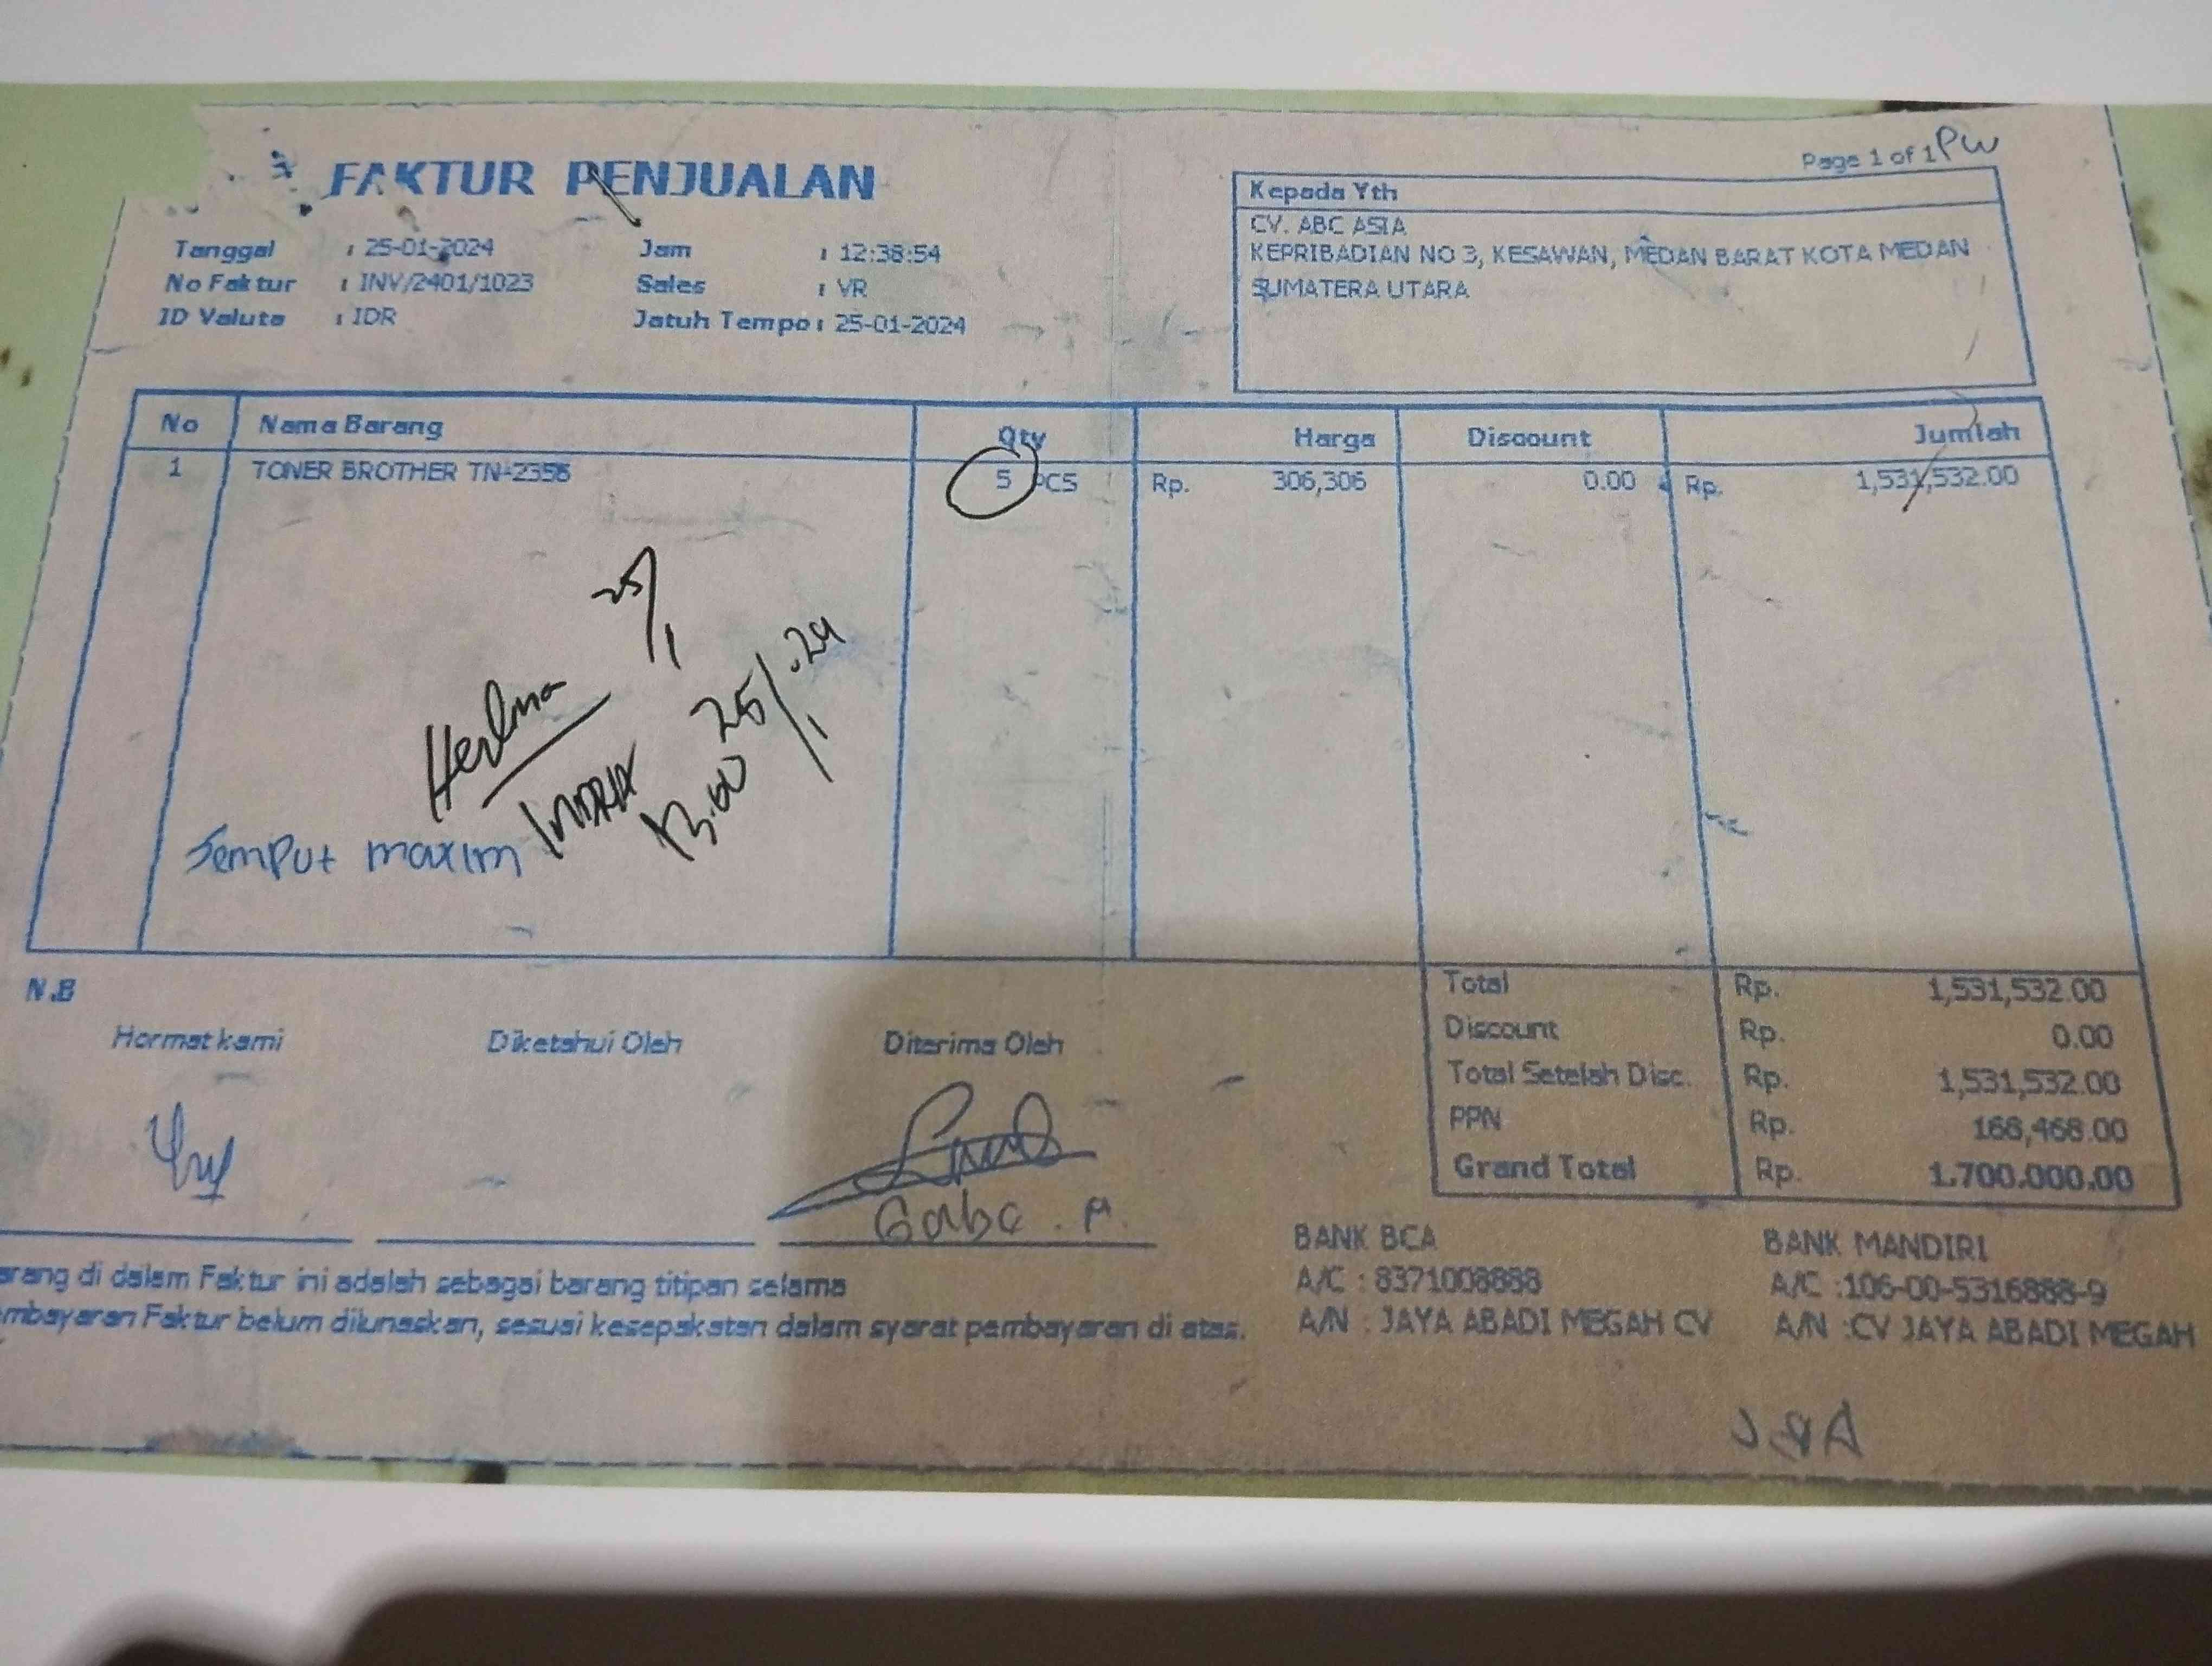 FAKTUR PENJUALAN
Page 1 of 1 PW
Tanggal : 25-01-2024 Jam : 12:38:54
No Faktur : INV/2401/1023 Sales : VR
ID Valuta : IDR Jatuh Tempo : 25-01-2024
Kepada Yth
CV. ABC ASIA
KEPRIBADIAN NO 3, KESAWAN, MEDAN BARAT KOTA MEDAN
SUMATERA UTARA
No Nama Barang Qty Harga Discount Jumlah
1 TONER BROTHER TN-2356 5 PCS Rp. 306,306 0.00 Rp. 1,531,532.00
25/1
Herlina
25/1.24
INDRA 13.00
Jemput maxim
N.B
Hormat kami Diketahui Oleh Diterima Oleh
Total Rp. 1,531,532.00
Discount Rp. 0.00
Total Setelah Disc. Rp. 1,531,532.00
PPN Rp. 168,468.00
Grand Total Rp. 1.700.000.00
arang di dalam Faktur ini adalah sebagai barang titipan selama
mbayaran Faktur belum dilunaskan, sesuai kesepakatan dalam syarat pembayaran di atas.
BANK BCA
A/C : 8371008888
A/N : JAYA ABADI MEGAH CV
BANK MANDIRI
A/C :106-00-5316888-9
A/N :CV JAYA ABADI MEGAH